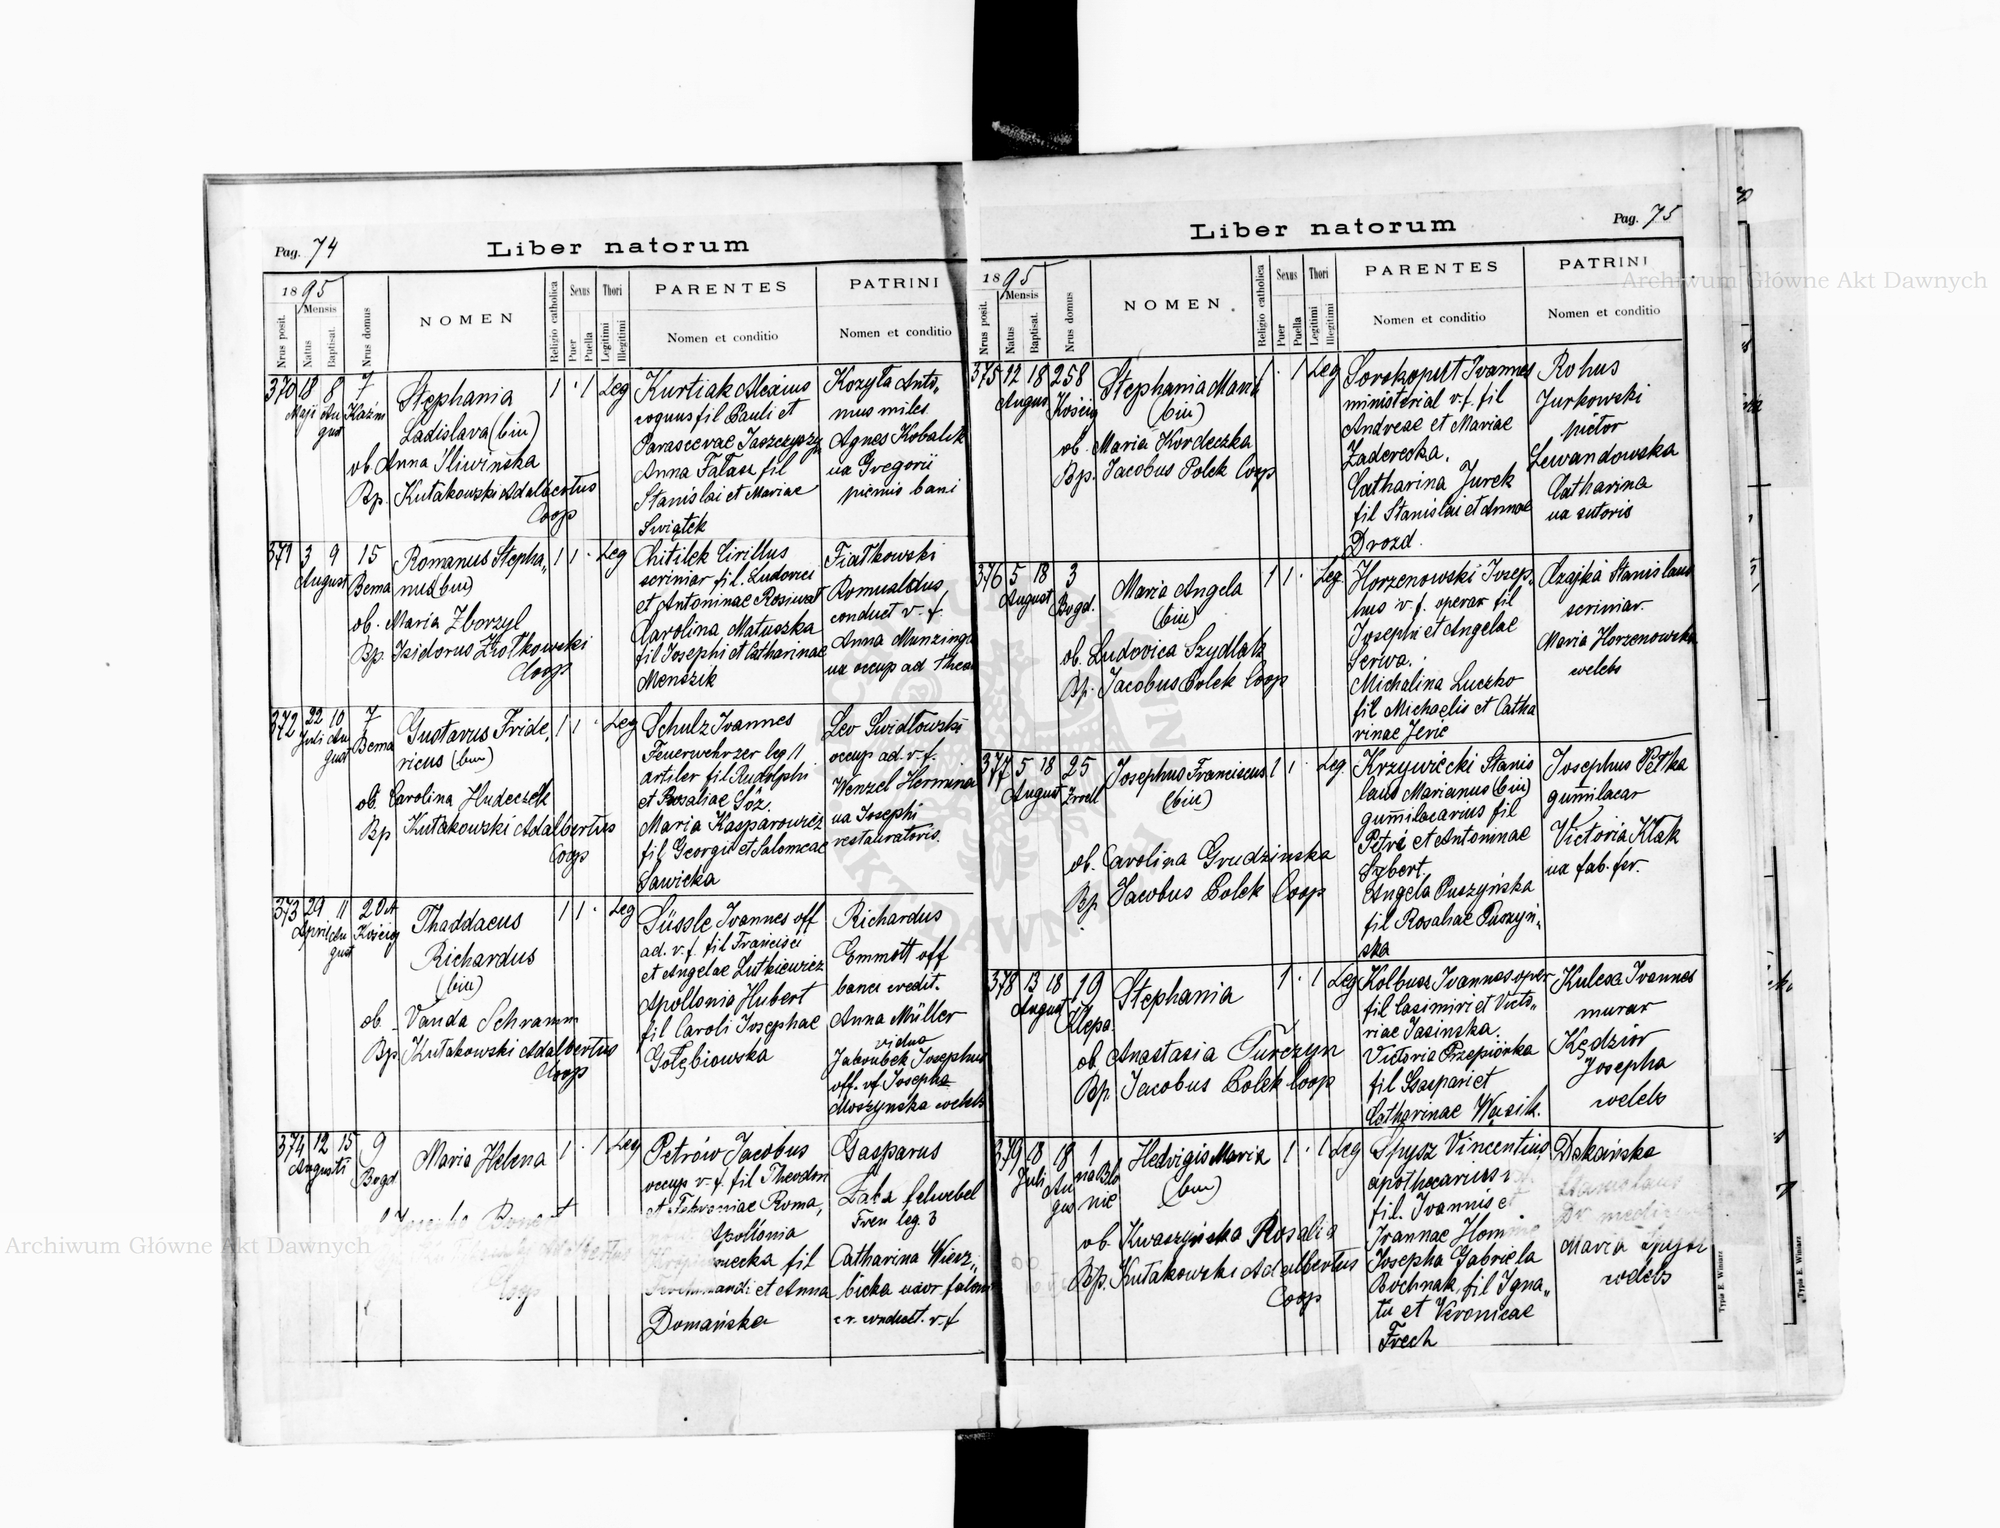 Pag. 74
Liber natorum
1895
Mensis
Nrus posit.
Natus
Baptisat.
Nrus domus
NOMEN
Religio catholica
Sexus
Puer
Puella
Thori
Legitimi
Illegitimi
PARENTES
Nomen et conditio
PATRINI
Nomen et conditio
370 18 8 7 Stephania 1 · 1 Leg Kurtiak Alexius Kozyła Anto-
Maji Au Kazim coquus fil Pauli et mus miles
gust Ladislava (bin) Parascevae Jaszczyszyn Agnes Kobalik
ob. Anna Sliwińska Anna Fałasa fil ua Gregorii
Bp. Kutakowski Adalbertus Stanislai et Mariae
Coop Swiątek
371 3 9 15 Romanus Stepha- 1 1 · Leg Chitilek Cirillus Fiatkowski
August Bema nus (bin) scriniar fil. Ludovici Romualdus
et Antoninae Rosiwal conduct v. f.
ob. Maria Zborzyl Carolina Matuszka Anna Munzinger
Bp. Isidorus Ziołkowski fil Josephi et Catharinae ua occup ad Thea
Coop Menszik
372 22 10 7 Gustavus Fride- 1 1 · Leg Schulz Ivannes Leo Swidlowski
Juli Au Bema ricus (bin) Feuerwehrzer leg 11 occup ad v. f.
gust artiler fil Rudolphi Wenzel Hermina
ob. Carolina Hudeczek et Rosaliae Göz. ua Josephi
Bp Kutakowski Adalbertus Maria Kasparowicz restauratoris.
Coop fil Georgii et Salomeae
Sawicka
373 29 11 20A Thaddaeus 1 1 · Leg Süssle Ivannes off Richardus
April Au Kościa ad. v. f. fil Francisci
gust Richardus et Angelae Lutkiewicz Emmott off
(bin) Apollonia Hubert banci credit.
ob. Vanda Schramm fil Caroli Josephae Anna Müller
Bp. Kutakowski Adalbertus Gołębiowska vidua
Coop Jakoubek Josephus
off. vf Josepha
Moszynska coelebs
374 12 15 9 Maria Helena 1 · 1 Leg Petrów Jacobus Gasparus
Augusti Bogd occup v. f. fil Theodori
et Roma,
Apollonia Fren leg. 3
fil Catharina Wierz-
et Anna bicka uxor
Coop Domańska conduct. v. f
Pag. 75
Liber natorum
1895
Mensis
Nrus posit.
Natus
Baptisat.
Nrus domus
NOMEN
Religio catholica
Sexus
Puer
Puella
Thori
Legitimi
Illegitimi
PARENTES
Nomen et conditio
PATRINI
Nomen et conditio
375 12 18 258 Stephania Maria 1 · 1 Leg Sorokoput Ivannes Rohus
August (bin) ministerial v. f. fil Jurkowski
ob. Maria Kordeczka Andreae et Mariae pictor
Bp. Jacobus Polek Coop Zaderecka. Lewandowska
Catharina Jurek Catharina
fil Stanislai et Annae ua sutoris
Drozd.
376 5 18 3 Maria Angela 1 1 · Leg. Horzenowski Josep- Czajka Stanislaus
August Bogd. (bin) hus v. f. operar fil scriniar.
Josephi et Angelae Maria Horzenowska
ob. Ludovica Szydlatz Serwa. coelebs
Bp. Jacobus Polek Coop Michalina Luczko
fil Michaelis et Catha
rinae Jeric
377 5 18 25 Josephus Franciscus 1 1 · Leg. Krzywiécki Stanis Josephus Pełka
August (bin) laus Marianus (bin) gumilacar
gumilacarius fil Victoria Kłak
ob. Carolina Grudzinska Petri et Antoninae ua fab. fer.
Bp. Jacobus Polek Coop Sybert.
Angela Puszyńska
fil Rosaliae Puszyń-
ska
378 13 18 19 Stephania 1 · 1 Leg Kolbusz Ivannes oper Kulesa Ivannes
August Klepa. fil Casimiri et Victo- murar
riae Jasinska. Kędzior
ob. Anastasia Turczyn Victoria Przepiórka Josepha
Bp. Jacobus Polek Coop fil Gaspari et coelebs
Catharinae Wasik.
379 18 18 1 Hedvigis Maria 1 · 1 Leg Spysz Vincentius Dakańska
Juli Au na Blo (bin) apothecarius
gus nie fil. Ivannis et Dr medi
ob. Kwaszyńska Rosalia Ivannae Maria
Bp. Kutakowski Adalbertus Josepha Gabriela coelebs
Coop Bochnak, fil Igna-
tii et Veronicae
Frech
Typis E. Winiarz
Typis E. Winiarz
Archiwum Główne Akt Dawnych
Archiwum Główne Akt Dawnych